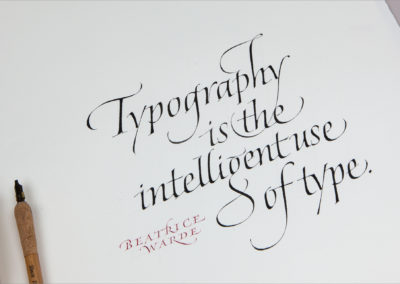 Typography
is the
intelligent use
of type.
BEATRICE
WARDE